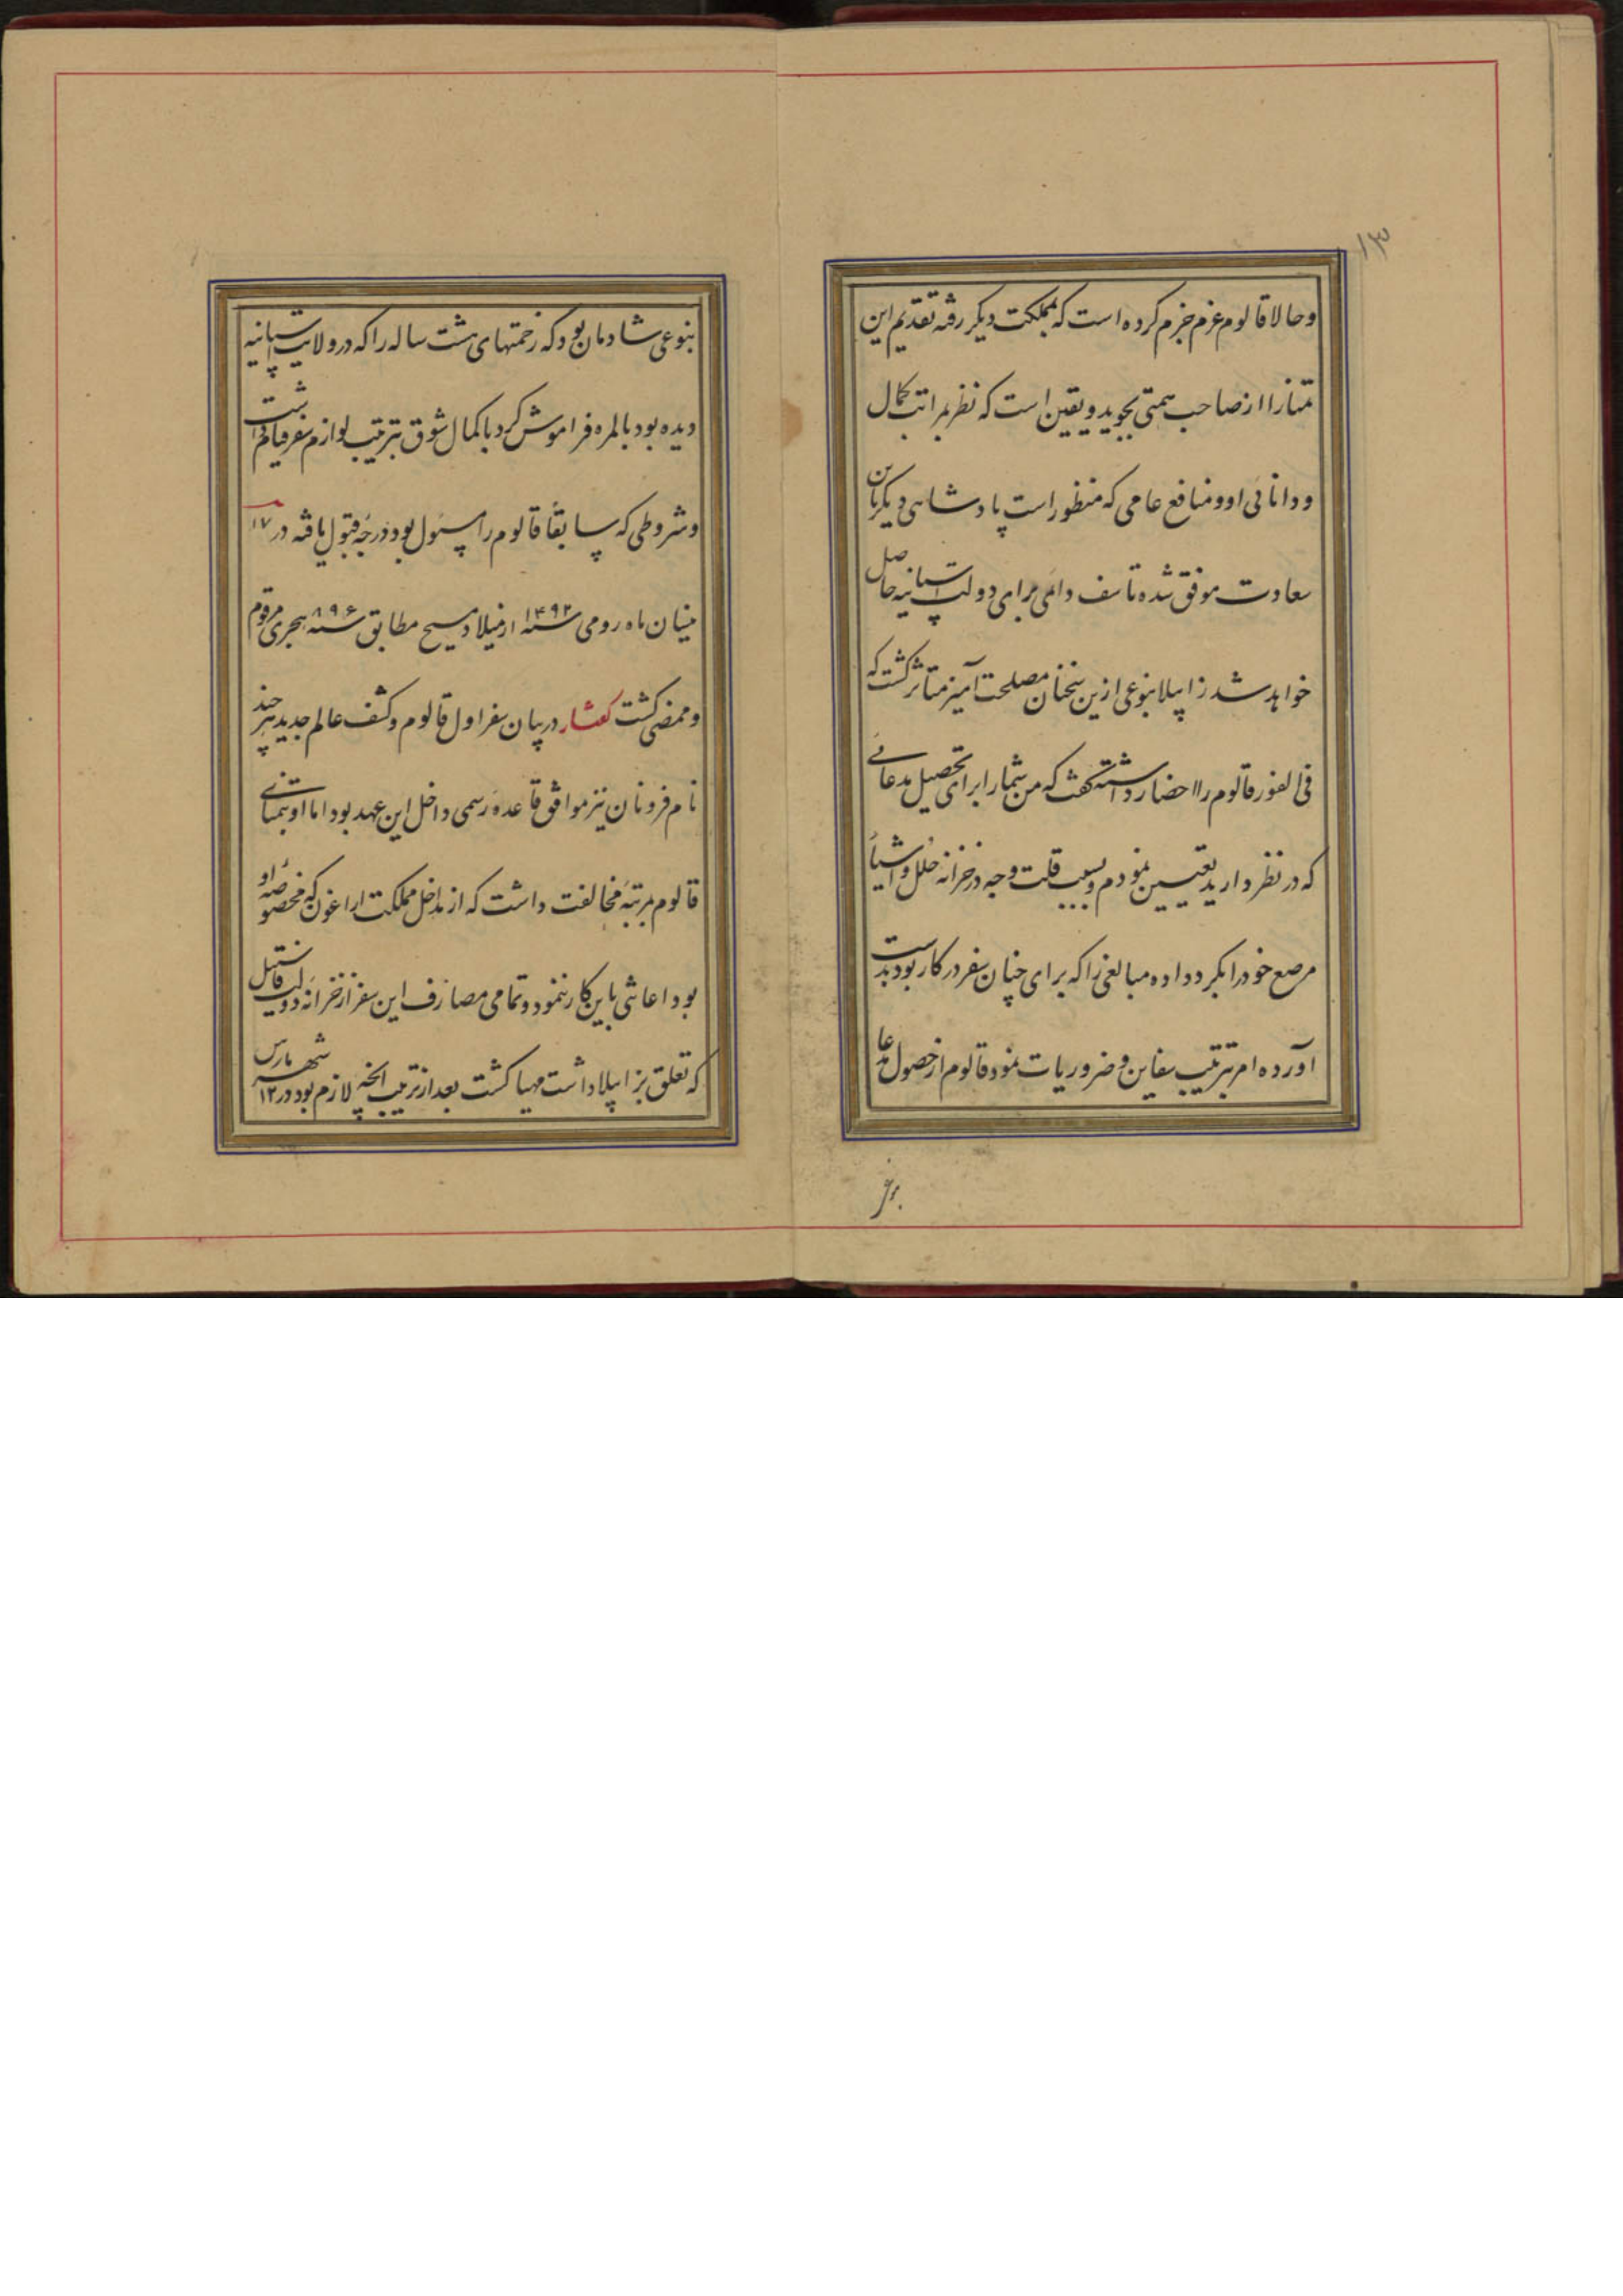 ۱۳
وحالا قالوم عزم جزم کرده است که بمملکت دیکر رفته تقدیم این
تمنا را از صاحب همتی بجوید و یقین است که نظر بمراتب کمال
و دانائی او و منافع عامی که منظور است پادشاهی دیکر باین
سعادت موفق شده تاسف دائمی برای دولت اسپانیه حاصل
خواهد شد زاپیلا بنوعی ازین سخنان مصلحت آمیز متاثر کشت که
فی الفور قالوم را احضار داشته کفت که من شما را برای تحصیل مدعائی
که در نظر دارید تعیین نمودم و بسبب قلت وجه در خزانه حلل و اشیاء
مرصع خود را بکرو داده مبالغی را که برای چنان سفر در کار بود بدست
آورده امر بترتیب سفاین و ضروریات نمود قالوم از حصول مدعا
بنوعی شادمان بود که زحمتهای هشت ساله را که در ولایت اسپانیه
دیده بود بالمره فراموش کرد با کمال شوق بترتیب لوازم سفر قیام داشت
و شروطی که سابقاً قالوم را مسئول بود درجه قبول یافته در ۱۷
نیسان ماه رومی سنه ۱۴۹۲ از میلاد مسیح مطابق سنه ۸۹۶ هجری مرقوم
و ممضی کشت کفتار در بیان سفر اول قالوم و کشف عالم جدید هر چند
نام فرونان نیز موافق قاعده رسمی داخل این عهد بود اما او بتمنای
قالوم بمرتبه مخالفت داشت که از مداخل مملکت اراغون که مخصوصه او
بود اعانتی باین کار ننمود و تمامی مصارف این سفر از خزانه دولت قاستیل
که تعلق بزاپیلا داشت مهیا کشت بعد از ترتیب آنچه لازم بود در ۱۲ شهر مارس